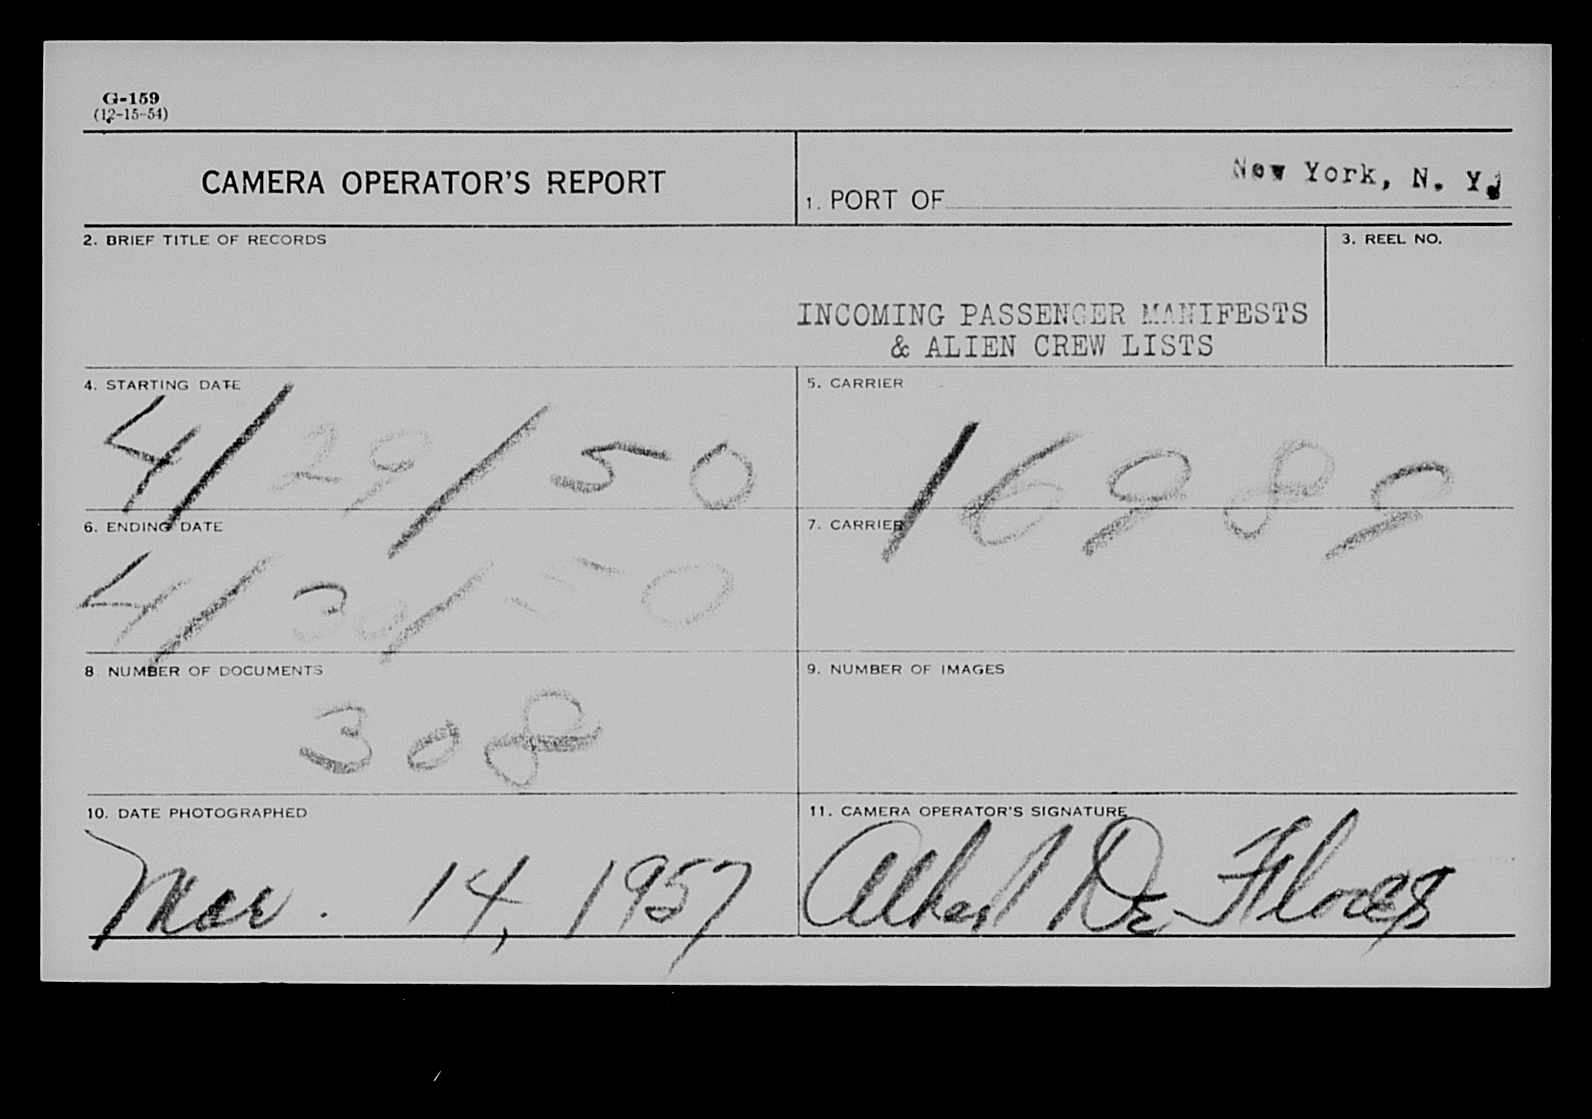 G-159
(12-15-54)
CAMERA OPERATOR'S REPORT
1. PORT OF New York, N. Y.
2. BRIEF TITLE OF RECORDS
INCOMING PASSENGER MANIFESTS
& ALIEN CREW LISTS
3. REEL NO.
4. STARTING DATE
4/29/50
5. CARRIER
16989
6. ENDING DATE
4/30/50
7. CARRIER
8 NUMBER OF DOCUMENTS
308
9. NUMBER OF IMAGES
10. DATE PHOTOGRAPHED
Mar. 14, 1957
11. CAMERA OPERATOR'S SIGNATURE
Albert De Flores